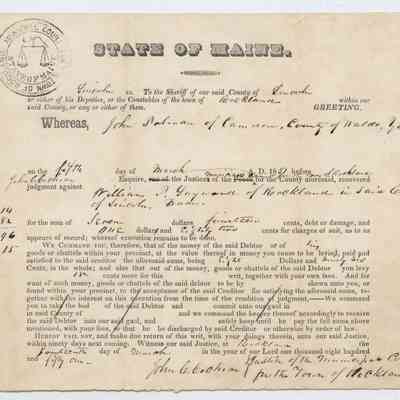 STATE OF MAINE.
Lincoln ss. To the Sheriff of our said County of Lincoln
or either of his Deputies, or the Constables of the town of Rockland within our
said County, or any or either of them. GREETING.
Whereas, John Robinson of Camden, County of Waldo,
on the fifth day of March A. D. 1851 before
John C. Cochran Esquire, one of the Justices of the for the County aforesaid, recovered
judgment against
William P. of Rockland in said County
of Lincoln,
14
82 for the sum of Seven dollars fourteen cents, debt or damage, and
96 one dollars eighty two cents for charges of suit, as to us
15 appears of record; whereof execution remains to be done.
WE COMMAND YOU, therefore, that of the money of the said Debtor or of his
goods or chattels within your precinct, at the value thereof in money you cause to be levied, paid and
satisfied to the said creditor the aforesaid sums, being eight Dollars and ninety six
Cents, in the whole; and also that out of the money, goods or chattels of the said Debtor you levy
15 cents more for this writ, together with your own fees. And for
want of such money, goods or chattels of the said debtor to be by shewn unto you, or
found within your precinct, to the acceptance of the said Creditor for satisfying the aforesaid sums, to-
gether with its interest on this execution from the time of the rendition of judgment,—We command
you to take the bod of the said Debtor and commit unto our gaol in
in said County of and we command the keeper thereof accordingly to receive
the said Debtor into our said gaol, and safely keep until he pay the full sums above
mentioned, with your fees, or that he be discharged by said Creditor or otherwise by order of law.
HEREOF FAIL NOT, and make due return of this writ, with your doings therein, unto our said Justice,
within ninety days next coming. Witness our said Justice, at Rockland the
fourteenth day of March in the year of our Lord one thousand eight hundred
and fifty one.
John C. Cochran Justice of the Municipal
for the Town of Rockland